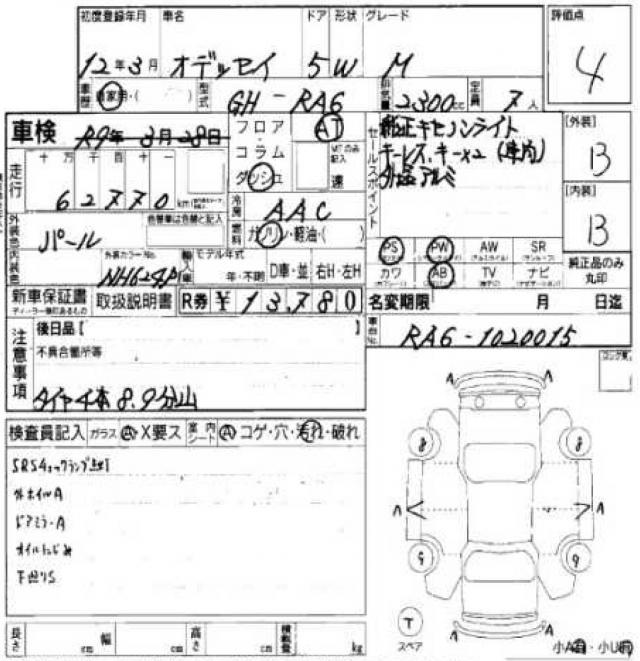 初度登録年月 車名 ドア 形状 グレード 評価点
12年3月 オデッセイ 5 W M 4
車歴 自家用・( ) 型式 GH-RA6 排気量 2300cc 定員 7人
車検 R9年 3月28日
フロア AT
コラム
ダッシュ 速
セールスポイント
純正キセノンライト
キーレス、キー×2
社外アルミ
[外装] B
[内装] B
走行 十 万 千 百 十 一
62770 km
冷房 AAC
燃料 ガソリン・軽油・( )
外装色 パール 色替車は色替と記入
内装色 外装カラーNo. NH624P
輸入車 モデル年式 年・不明 D車・並 右H・左H
PS PW AW SR
カワ AB TV ナビ
純正品のみ丸印
新車保証書 取扱説明書 R券 ¥13,780
名変期限 月 日迄
車台No. RA6-1020015
注意事項
後日品【 】
不具合箇所等
タイヤ4本 8.9分山
検査員記入 ガラス A・X要ス 室内シート A コゲ・穴・汚れ・破れ
SRSチェックランプ点灯
外ホイルA
ドアミラーA
オイルにじみ
下回りS
8 8
A A A A
9 9
T
スペア
A A
長さ cm 幅 cm 高さ cm 積載量 kg
小A・小U